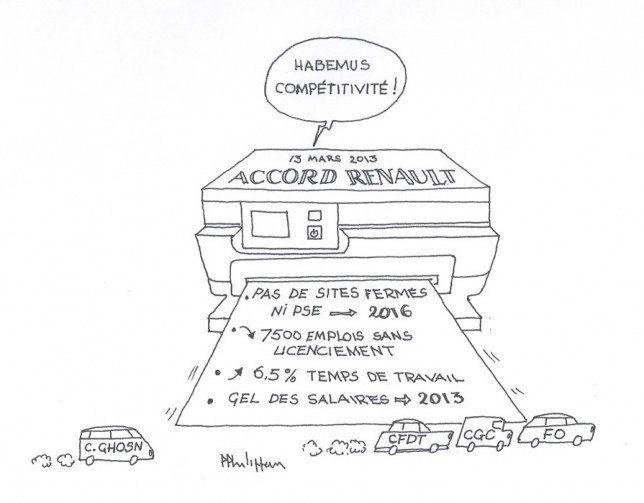 HABEMUS
COMPÉTITIVITÉ !
13 MARS 2013
ACCORD RENAULT
• PAS DE SITES FERMÉS
NI PSE ⇒ 2016
• ↘ 7500 EMPLOIS SANS
LICENCIEMENT
• ↗ 6,5% TEMPS DE TRAVAIL
• GEL DES SALAIRES ⇒ 2013
C. GHOSN
CFDT
CGC
FO